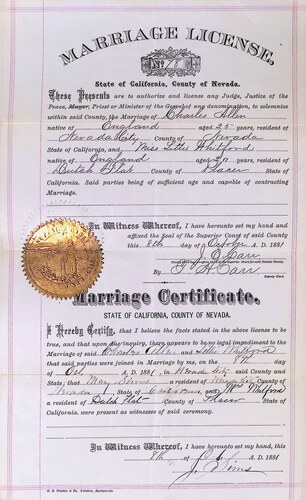 MARRIAGE LICENSE,
No. 78
State of California, County of Nevada.
These Presents are to authorize and license any Judge, Justice of the
Peace, Mayor, Priest or Minister of the Gospel of any denomination, to solemnize
within said County, the Marriage of Charles Allen
native of England aged 25 years, resident of
Nevada City County of Nevada
State of California, and Miss Lettie Whitford
native of England aged 20 years, resident of
Dutch Flat County of Placer
State of California. Said parties being of sufficient age and capable of contracting
Marriage.
In Witness Whereof, I have hereunto set my hand and
affixed the Seal of the Superior Court of said County
this 8th day of October A. D. 1881
J. Carr
By Carr
Deputy Clerk.
Marriage Certificate.
STATE OF CALIFORNIA, COUNTY OF NEVADA.
I Hereby Certify, that I believe the facts stated in the above license to be
true, and that upon due inquiry, there appears to be no legal impediment to the
Marriage of said Charles Allen and Lettie Whitford
that said parties were joined in Marriage by me, on the 8th
day of Oct A. D. 1881, in Nevada City County and
State; that Mary Sims a resident of Nevada City County of
Nevada State of California, and Wm Whitford
a resident of Dutch Flat County of Placer State of
California, were present as witnesses of said ceremony.
In Witness Whereof, I have hereunto set my hand, this
8th day of Oct A. D. 1881
J. Sims